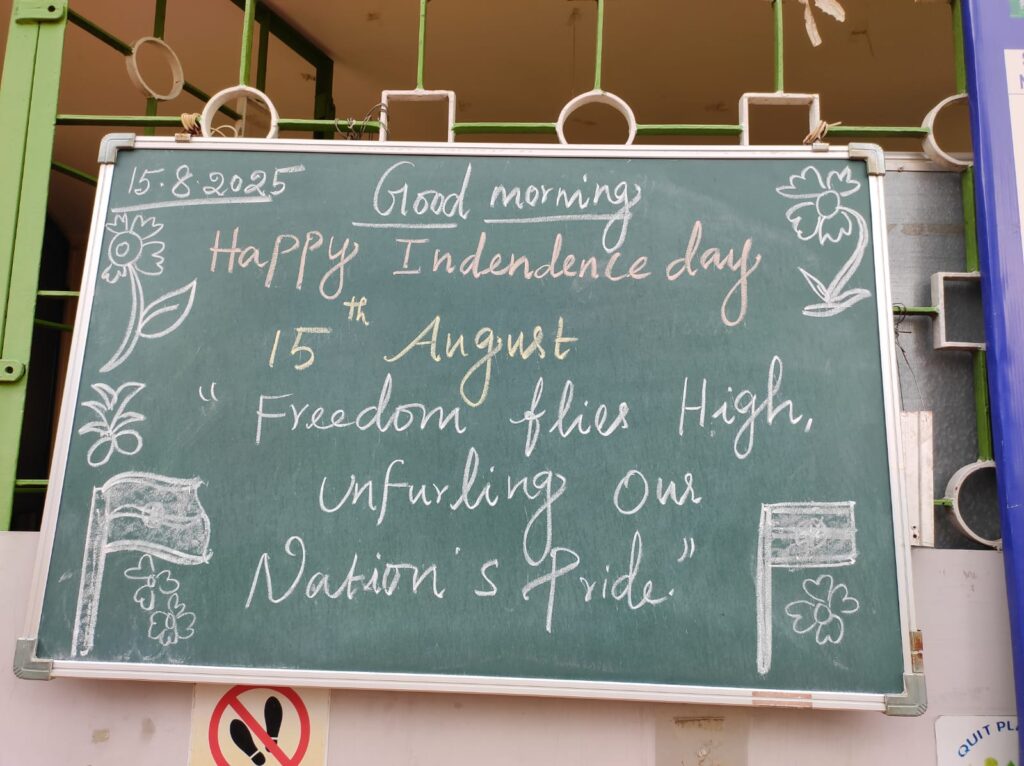 15.8.2025
Good morning
Happy Indendence day
15th August
" Freedom flies High,
unfurling Our
Nation's Pride."
QUIT PLA